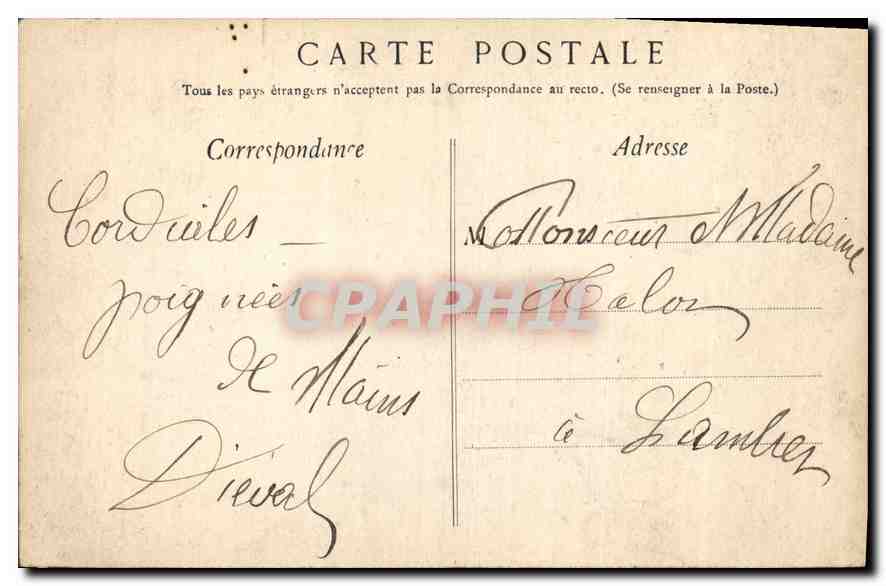 CARTE POSTALE
Tous les pays étrangers n'acceptent pas la Correspondance au recto. (Se renseigner à la Poste.)
Correspondance
Cordiales
poignées
de Mains
Dieval
Adresse
M Monsieur & Madame
Malou
à Lambres
CPAPHIL